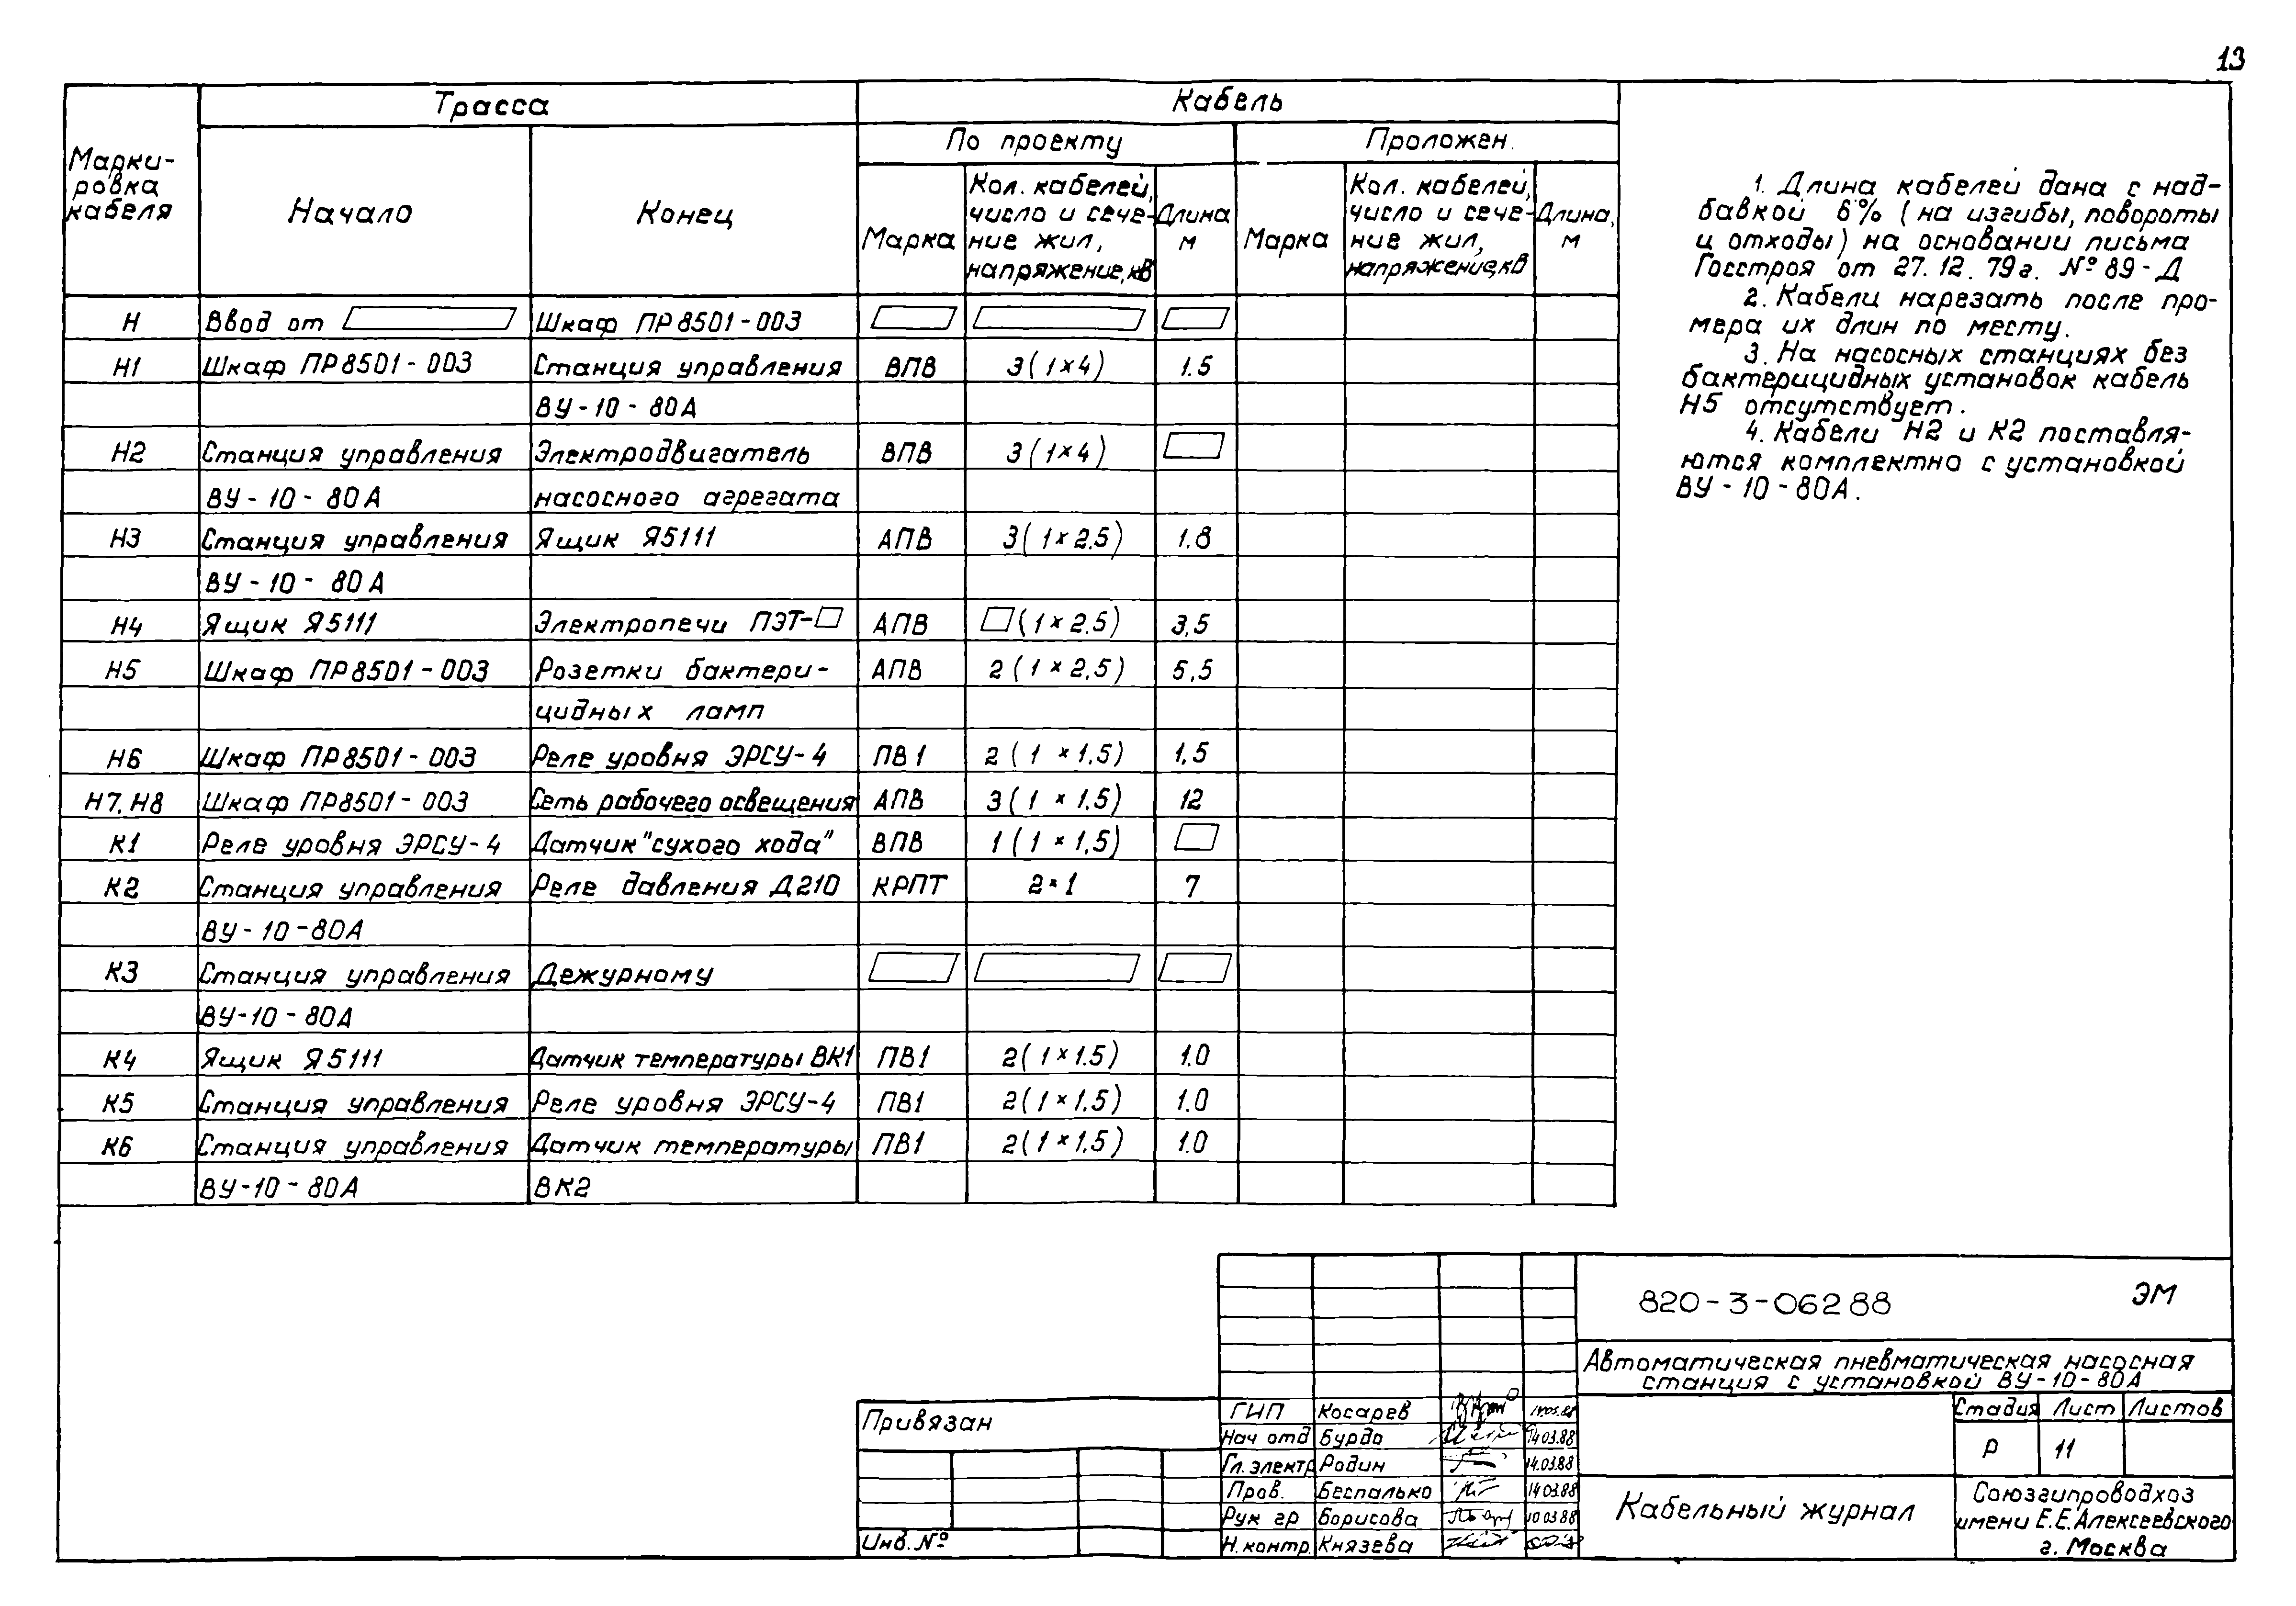 13
Трасса
Кабель
По проекту
Проложен.
Марки-
ровка
кабеля
Начало
Конец
Марка
Кол. кабелей,
число и сече-
ние жил,
напряжение, кВ
Длина
м
Марка
Кол. кабелей,
число и сече-
ние жил,
напряжение, кВ
Длина,
м
Н Ввод от Шкаф ПР8501-003
Н1 Шкаф ПР8501-003 Станция управления ВПВ 3(1×4) 1.5
ВУ-10-80А
Н2 Станция управления Электродвигатель ВПВ 3(1×4)
ВУ-10-80А насосного агрегата
Н3 Станция управления Ящик Я5111 АПВ 3(1×2.5) 1.8
ВУ-10-80А
Н4 Ящик Я5111 Электропечи ПЭТ- АПВ (1×2.5) 3,5
Н5 Шкаф ПР8501-003 Розетки бактери- АПВ 2(1×2,5) 5,5
цидных ламп
Н6 Шкаф ПР8501-003 Реле уровня ЭРСУ-4 ПВ1 2(1×1,5) 1,5
Н7, Н8 Шкаф ПР8501-003 Сеть рабочего освещения АПВ 3(1×1,5) 12
К1 Реле уровня ЭРСУ-4 Датчик "сухого хода" ВПВ 1(1×1,5)
К2 Станция управления Реле давления Д210 КРПТ 2×1 7
ВУ-10-80А
К3 Станция управления Дежурному
ВУ-10-80А
К4 Ящик Я5111 Датчик температуры ВК1 ПВ1 2(1×1.5) 1.0
К5 Станция управления Реле уровня ЭРСУ-4 ПВ1 2(1×1,5) 1.0
К6 Станция управления Датчик температуры ПВ1 2(1×1.5) 1.0
ВУ-10-80А ВК2
1. Длина кабелей дана с над-
бавкой 6% (на изгибы, повороты
и отходы) на основании письма
Госстроя от 27.12.79г. № 89-Д
2. Кабели нарезать после про-
мера их длин по месту.
3. На насосных станциях без
бактерицидных установок кабель
Н5 отсутствует.
4. Кабели Н2 и К2 поставля-
ются комплектно с установкой
ВУ-10-80А.
820-3-06288 ЭМ
Автоматическая пневматическая насосная
станция с установкой ВУ-10-80А
Привязан
Инв. №
ГИП Косарев
Нач отд Бурдо 14.03.88
Гл. электр Родин 14.03.88
Пров. Беспалько 14.03.88
Рук гр Борисова 10.03.88
Н. контр. Князева
Стадия Лист Листов
Р 11
Кабельный журнал
Союзгипроводхоз
имени Е.Е. Алексеевского
г. Москва